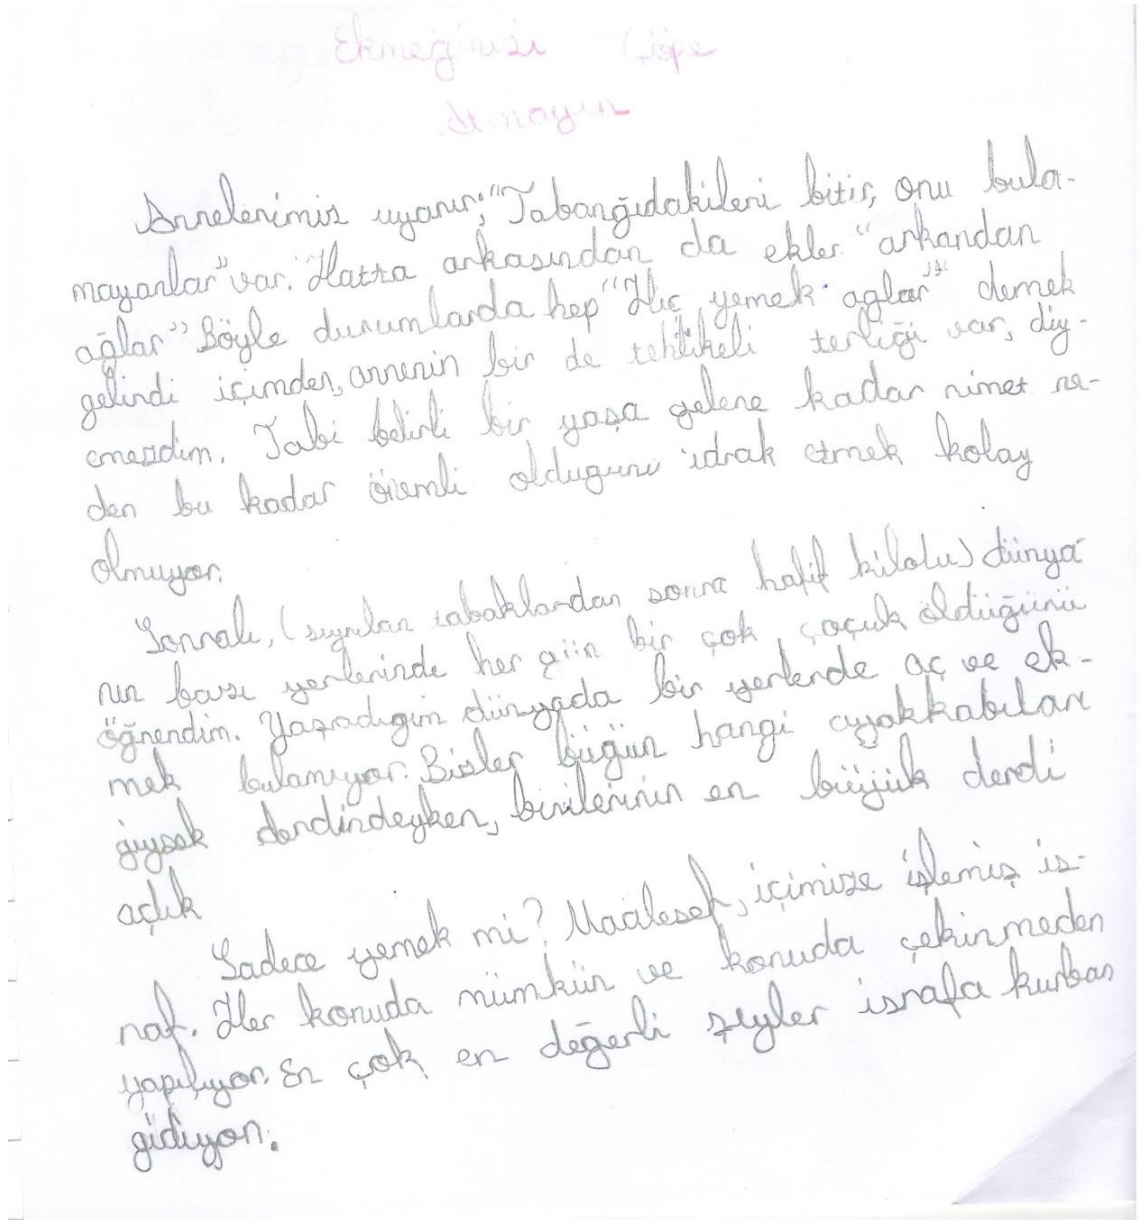 Ekmeğinizi Çöpe
Atmayın
Annelerimiz uyarır; "Tabanğıdakileri bitir, onu bula-
mayanlar" var. "Hatta arkasından da ekler "arkandan
ağlar" Böyle durumlarda hep "Hiç yemek aglar" demek
gelirdi içimden, annenin bir de tehlikeli terliği var, diy-
emezdim. Tabi belirli bir yaşa gelene kadar nimet ne-
den bu kadar önemli oldugunu idrak etmek kolay
olmuyor.
Sonraları, (sıyrılan tabaklardan sonra hafif kilolu) dünya
nın bazı yerlerinde her gün bir çok çoçuk öldüğünü
öğrendim. Yaşadıgım dünyada bir yerlerde aç ve ek-
mek bulamıyor. Bizler büğün hangi ayakkabıları
ğiysek derdindeyken, birilerinin en büyük derdi
açlık
Sadece yemek mi? Maalesef, içimize işlemiş is-
raf. Her konuda mümkün ve konuda çekinmeden
yapılıyor. En çok en değerli şeyler israfa kurban
gidiyor.